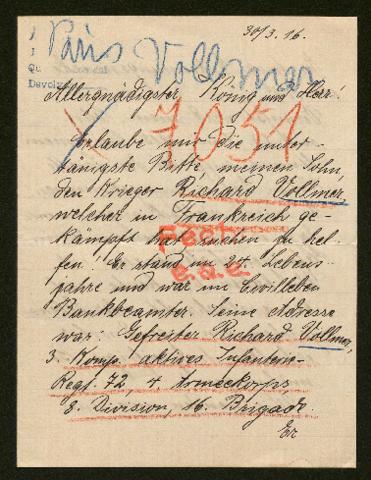 30/3. 16.
Paris Vollmer
Devolve
Allergnädigster König und Herr!
7051
Erlaube mir die unter-
tänigste Bitte, meinen Sohn,
den Krieger Richard Vollmer,
welcher in Frankreich ge-
kämpft hat, suchen zu hel-
fen. Er stand im 24. Lebens-
jahre und war im Civilleben
Bankbeamter. Seine Adresse
war: Gefreiter Richard Vollmer,
3. Komp. aktives Infanterie-
Regt. 72, 4 Armeekorps
8. Division, 16. Brigade.
Er